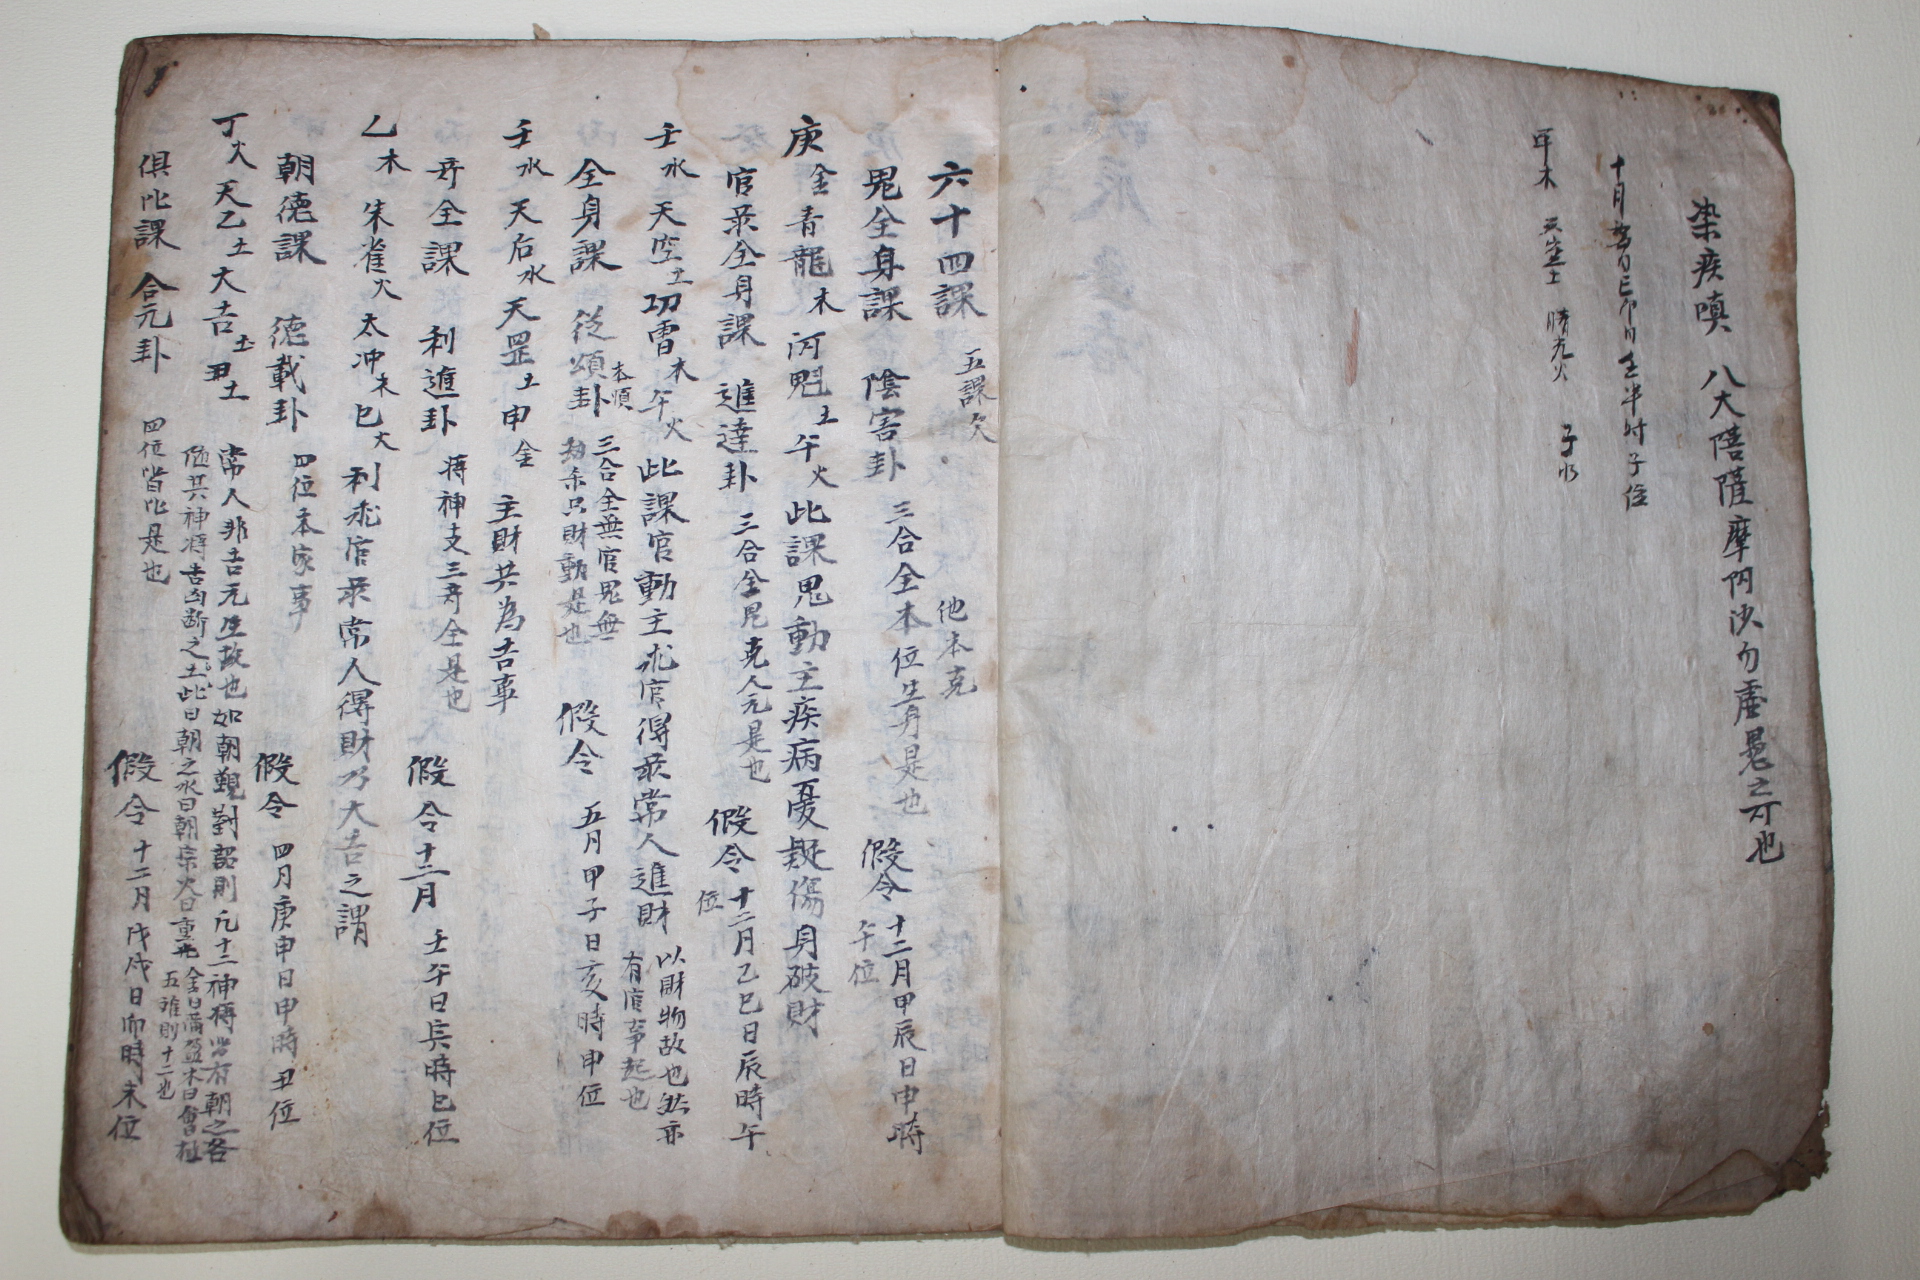 染疾嗔 八大菩薩摩訶沙
十月 己卯日 半时子位
木 土 勝光火 子水
六十四課 五課欠 他本克
鬼全身課 陰害卦 三合全本位生身是也 假令十二月甲辰日申時午位
庚金青龍木河魁土午火此課鬼動主疾病憂疑傷身破財
官录全身課 進達卦 三合全鬼克人元是也 假令十二月乙巳日辰時午位
壬水天空土功曺木午火此課官動主求官得录常人進財 以財物故也然亦有官事起也
全身課 從順卦 本順 三合全無官鬼無劫杀只財動是也 假令 五月甲子日亥時申位
壬水天后水天罡土申金 主財共為吉事
奇全課 利進卦 将神支三奇全是也 假令十二月 壬午日長時巳位
乙木朱雀火太冲木巳火利求官录常人得財乃大吉之謂
朝德課 德載卦 四位本家事 假令 四月庚申日申時丑位
丁火天乙土大吉土丑土 常人非吉元生故也如朝覲對詔則凡十二神将皆有朝之各
随其神将吉凶断之土此曰朝之水曰朝宗火曰重 金曰滿盈木曰會 五 則十二也
俱比課 合元卦 四位皆比是也 假令 十二月戊戌日卯時未位